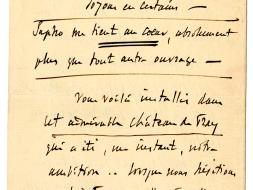 Soyons en certains —
Sapho me tient au cœur, absolument
plus que tout autre ouvrage —
Vous voilà installés dans
cet admirable château de
qui a été, un instant, notre
ambition .. lorsque nous hésitions